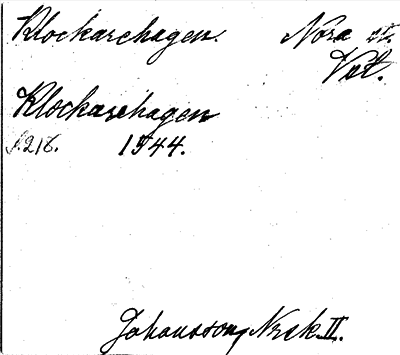 Klockarehagen. Nora sn
Vst.
Klockarehagen
s. 218. 1544.
Johansson, Nrsk II.